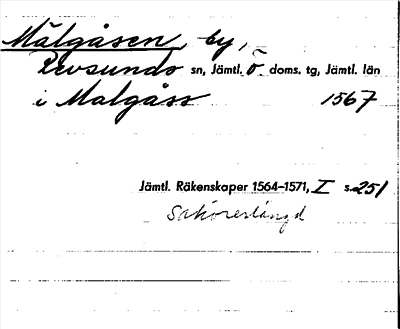 Mälgåsen, by,
Revsunds sn, Jämtl. ö. doms. tg, Jämtl. län
i Malgåss 1567
Jämtl. Räkenskaper 1564–1571, I s. 251
Sakörerlängd